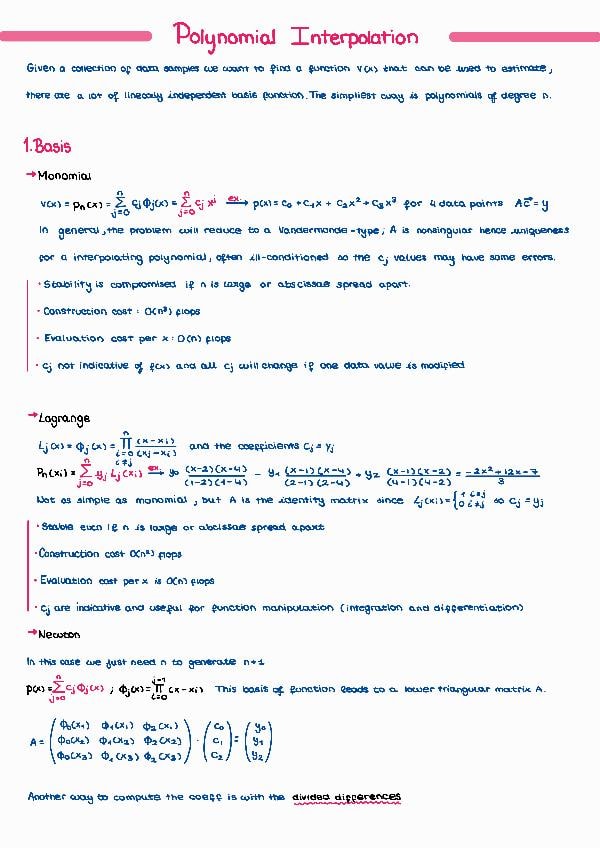 Polynomial Interpolation
Given a collection of data samples we want to find a function v(x) that can be used to estimate,
there are a lot of linearly independent basis function. The simpliest way is polynomials of degree n.
1. Basis
→ Monomial
v(x) = pₙ(x) = ∑_{j=0}^{n} cⱼ ϕⱼ(x) = ∑_{j=0}^{n} cⱼ xʲ —ex.→ p(x) = c₀ + c₁x + c₂x² + c₃x³ for 4 data points Ac⃗ = y
In general, the problem will reduce to a Vandermonde-type; A is nonsingular hence uniqueness
for a interpolating polynomial, often ill-conditioned so the cⱼ values may have some errors.
· Stability is compromised if n is large or abscissas spread apart.
· Construction cost: O(n³) flops
· Evaluation cost per x: O(n) flops
· cⱼ not indicative of f(x) and all cⱼ will change if one data value is modified
→ Lagrange
Lⱼ(x) = ϕⱼ(x) = ∏_{i=0, i≠j}^{n} (x-xᵢ)/(xⱼ-xᵢ) and the coefficients cⱼ = yⱼ
pₙ(xᵢ) = ∑_{j=0}^{n} yⱼ Lⱼ(xᵢ) —ex.→ y₀ (x-2)(x-4)/(1-2)(1-4) - y₁ (x-1)(x-4)/(2-1)(2-4) + y₂ (x-1)(x-2)/(4-1)(4-2) = -2x²+12x-7/3
Not as simple as monomial, but A is the identity matrix since Lⱼ(xᵢ) = {1 i=j 0 i≠j so cⱼ = yⱼ
· Stable even if n is large or abscissas spread apart
· Construction cost O(n²) flops
· Evaluation cost per x is O(n) flops
· cⱼ are indicative and useful for function manipulation (integration and differentiation)
→ Newton
In this case we just need n to generate n+1
p(x) = ∑_{j=0}^{n} cⱼ ϕⱼ(x) ; ϕⱼ(x) = ∏_{i=0}^{j-1} (x-xᵢ) This basis of function leads to a lower triangular matrix A.
ϕ₀(x₁) ϕ₁(x₁) ϕ₂(x₁) c₀ y₀
A = ϕ₀(x₂) ϕ₁(x₂) ϕ₂(x₂) · c₁ = y₁
ϕ₀(x₃) ϕ₁(x₃) ϕ₂(x₃) c₂ y₂
Another way to compute the coeff is with the divided differences